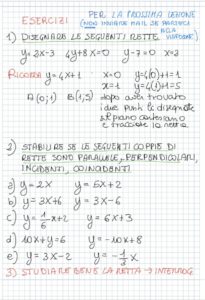 ESERCIZI PER LA PROSSIMA LEZIONE
(NON INVIATE MAIL SE PARTECIPATE
ALLA
1) DISEGNARE LE SEGUENTI RETTE
y=2x-3 4y+8x=0 y-7=0 x=2
RICORDA y=4x+1 x=0 y=4(0)+1=1
x=1 y=4(1)+1=5
A(0;1) B(1,5) dopo aver trovato i
due punti li disegnate
sul piano cartesiano
e tracciate la retta
2) STABILIRE SE LE SEGUENTI COPPIE DI
RETTE SONO PARALLELE, PERPENDICOLARI,
INCIDENTI, COINCIDENTI
a) y=2x y=5x+2
b) y=3x+6 y=3x-6
c) y=1/6x+2 y=6x+3
d) 10x+y=6 y=-10x+8
e) y=3x-2 y=-1/3x
3) STUDIARE BENE LA RETTA → INTERROG